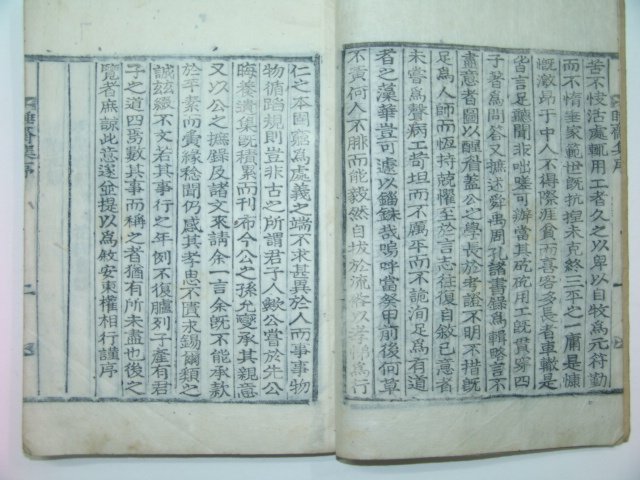 苦不悛活處輒用工者久之以卑以自牧爲元符勤
而不惰垂家範世旣抗捏未克終三平之一庸是慷
慨激昂於中人不得際涯貪而喜客多長者車轍是
皆言足聽聞非咄嗟可辦當其矻矻用工旣貫穿四
子著爲問答又摭述舜禹周孔諸書錄爲輯略言不
肅意者圖以醒蓋公之學長於考證不明不措旣
足爲人師而恆持兢懼至於言志往復自敘已意者
未嘗爲聲病工苟坦而不厲平而不詭洵足爲有道
者之漢華豈可遽以錙銖哉嗚呼當癸甲前後何草
不黃何人不腓而能毅然自拔於流俗以孝悌爲行
仁之本固窮爲處義之端不求甚異於人而事事物
物循蹈規則豈非古之所謂君子人歟公嘗於先公
晦養遺集旣積累而刊布今公之孫允燮承其親意
又以公之摭錄及諸文來請余一言余旣不能承款
於平素而黃緣稔聞仍感其孝思不匱求錫爾類之
誠玆綴不文若其事行之年例不復臚列子產有君
子之道四焉數其事而稱之者猶有所未盡也後之
覽者庶諒此意遂並提以爲敘安東權相行謹序
集序
二